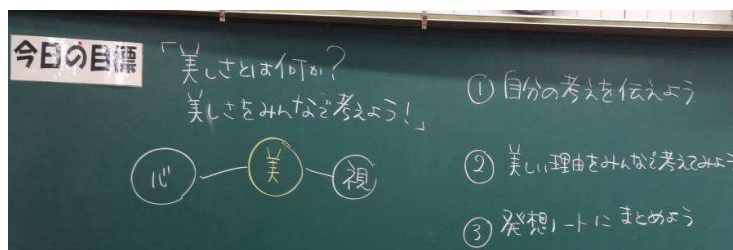 今日の目標
「美しさとは何か?
美しさをみんなで考えよう!」
心 美 視
① 自分の考えを伝えよう
② 美しい理由をみんなで考えてみよう
③ 発想ノートにまとめよう